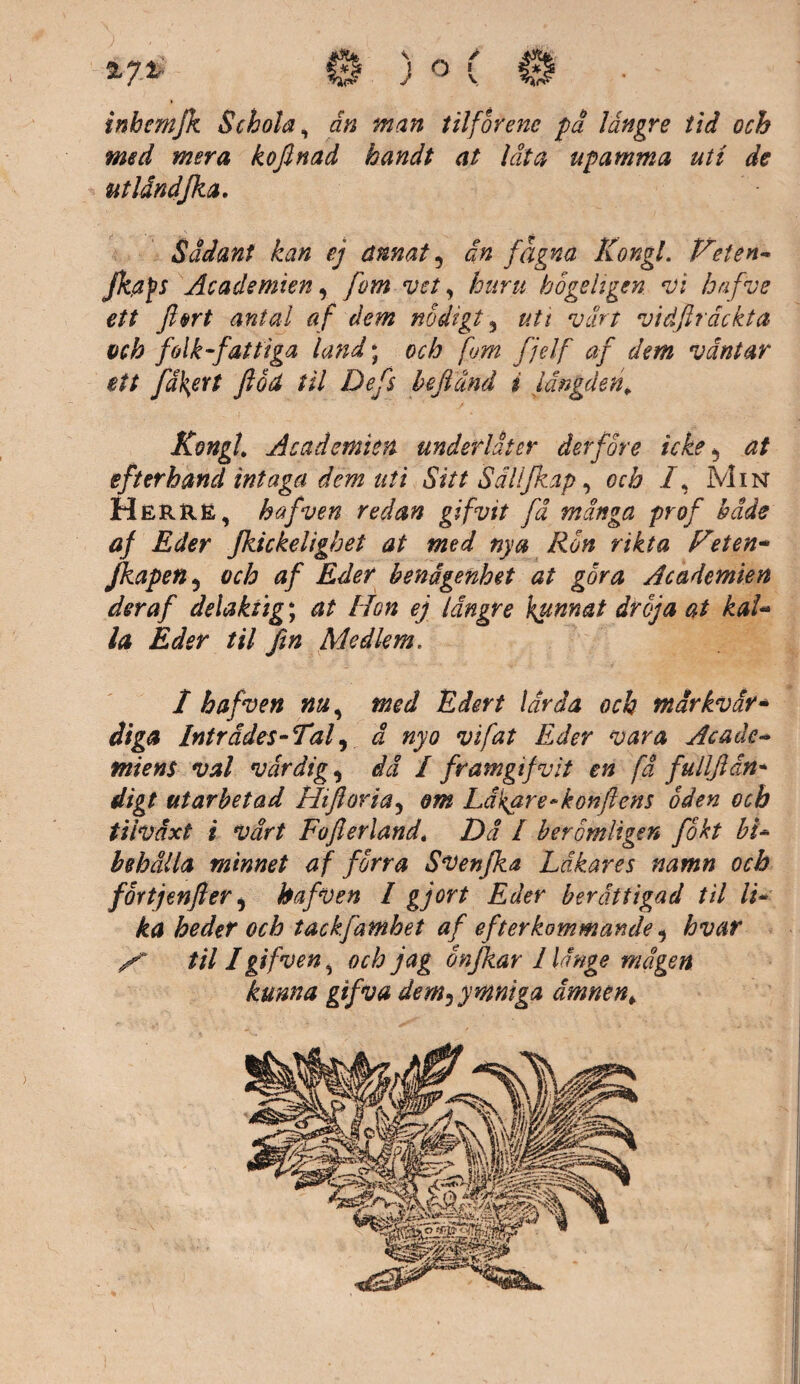 272 ) o (
inhemſk Schola, än man tilförene på längre tid och
med mera koſtnad handt at låta upamma uti de
utländſka.
Sådant kan ej annat, än fägna Kongl. Veten-
ſkaps Academien, ſom vet, huru högeligen vi hafve
ett ſtort antal af dem nödigt, uti vårt vidſträckta
och folk-fattiga land; och ſom ſjelf af dem väntar
ett ſäkert ſtöd til Deſs beſtånd i längden.
Kongl. Academien underlåter derföre icke, at
efterhand intaga dem uti Sitt Sällſkap, och I, MIN
HERRE, hafven redan gifvit få många prof både
af Eder ſkickelighet at med nya Rön rikta Veten-
ſkapen, och af Eder benägenhet at göra Academien
deraf delaktig; at Hon ej längre kunnat dröja at kal-
la Eder til ſin Medlem.
I hafven nu, med Edert lärda och märkvär-
diga Inträdes-Tal, å nyo viſat Eder vara Acade-
miens val värdig, då I framgifvit en ſå fullſtän-
digt utarbetad Hiſtoria, om Läkare-konſtens öden och
tilväxt i vårt Foſterland. Då I berömligen ſökt bi-
behålla minnet af förra Svenſka Läkares namn och
förtjenſter, hafven I gjort Eder berättigad til li-
ka heder och tackſamhet af efterkommande, hvar
til I gifven, och jag önſkar I länge mågen
kunna gifva dem, ymniga ämnen.